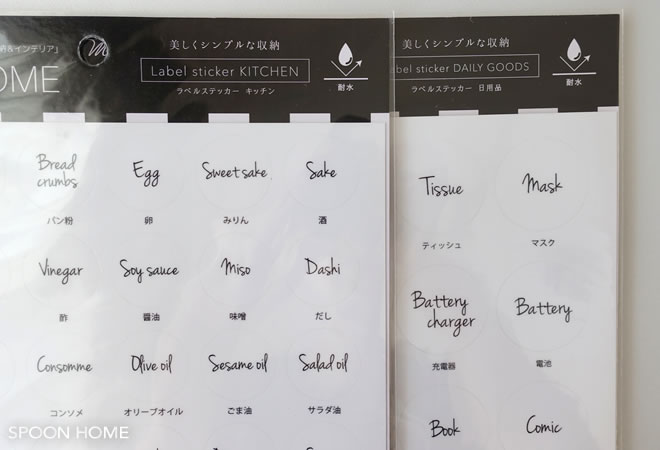 納&インテリア」
OME
美しくシンプルな収納
Label sticker KITCHEN
ラベルステッカー キッチン
耐水
Bread
crumbs
パン粉
Egg
卵
Sweet sake
みりん
Sake
酒
Vinegar
酢
Soy sauce
醤油
Miso
味噌
Dashi
だし
Consomme
コンソメ
Olive oil
オリーブオイル
Sesame oil
ごま油
Salad oil
サラダ油
美しくシンプルな収納
bel sticker DAILY GOODS
ラベルステッカー 日用品
耐水
Tissue
ティッシュ
Mask
マスク
Battery
charger
充電器
Battery
電池
Book
Comic
SPOON HOME